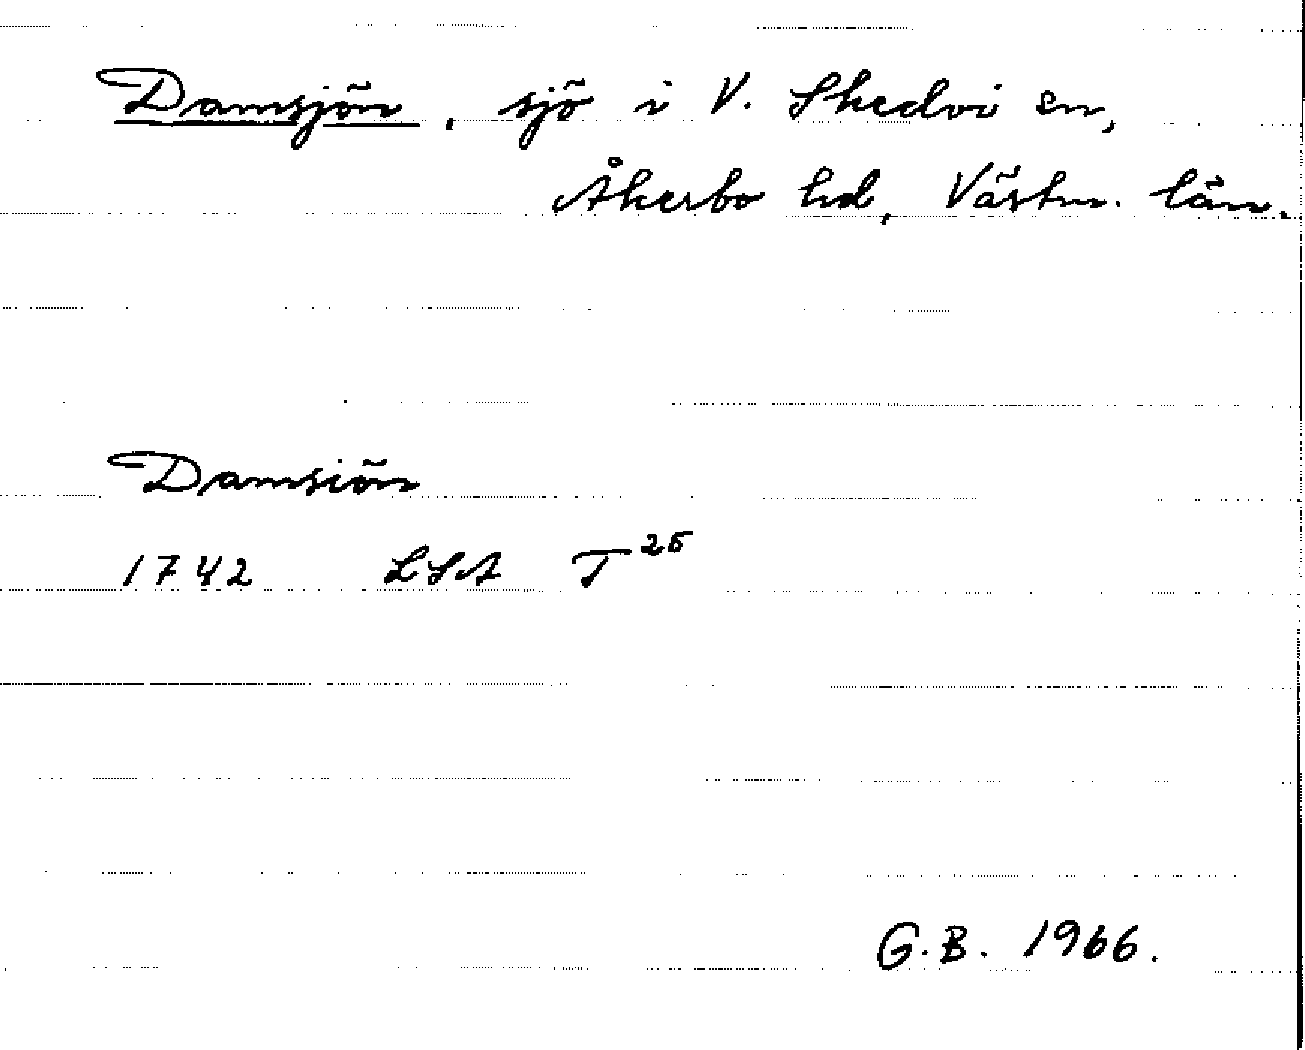 Damsjön, sjö i V. Skedvi sn,
Åkerbo hd, Västm. län.
Damsiön
1742 LSA T 25
G.B. 1966.